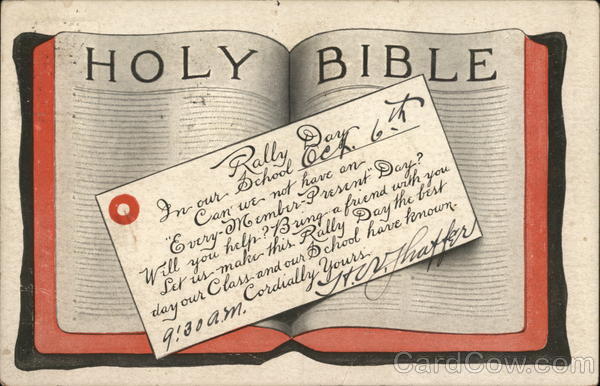 HOLY BIBLE
Rally Day
In our School Oct. 6th
Can we not have an
"Every-Member-Present" Day?
Will you help? Bring a friend with you
Let us make this Rally Day the best
day our Class and our School have known.
Cordially Yours
9:30 A.M.
Shaffer
CardCow.com